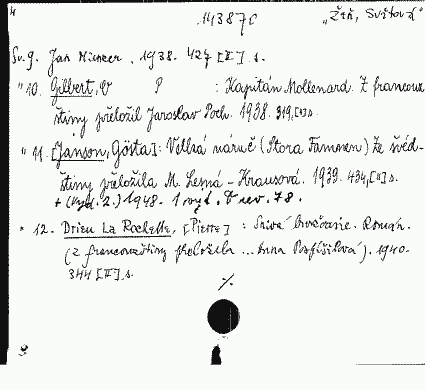 4
1143870
"Žeň, Světová"
Sv. 9. Jan 1938. 427 [II] s.
" 10. Gilbert, O P : Kapitán Mollenard. Z francouz
štiny přeložil Jaroslav Poch. 1938. 319, [1] s.
" 11. [Janson, Gösta]: Velká náruč (Stora Famnen) Ze švéd-
štiny přeložila M. Lesná - Krausová. 1939. 434, [II] s.
+ (Vyd. 2.) 1948. 1 sv.
" 12. Drieu La Rochelle, [Pierre] : Snivé Román.
(Z francouzštiny přeložila ... Anna Pospíšilová). 1940.
344 [II] s.
·/.